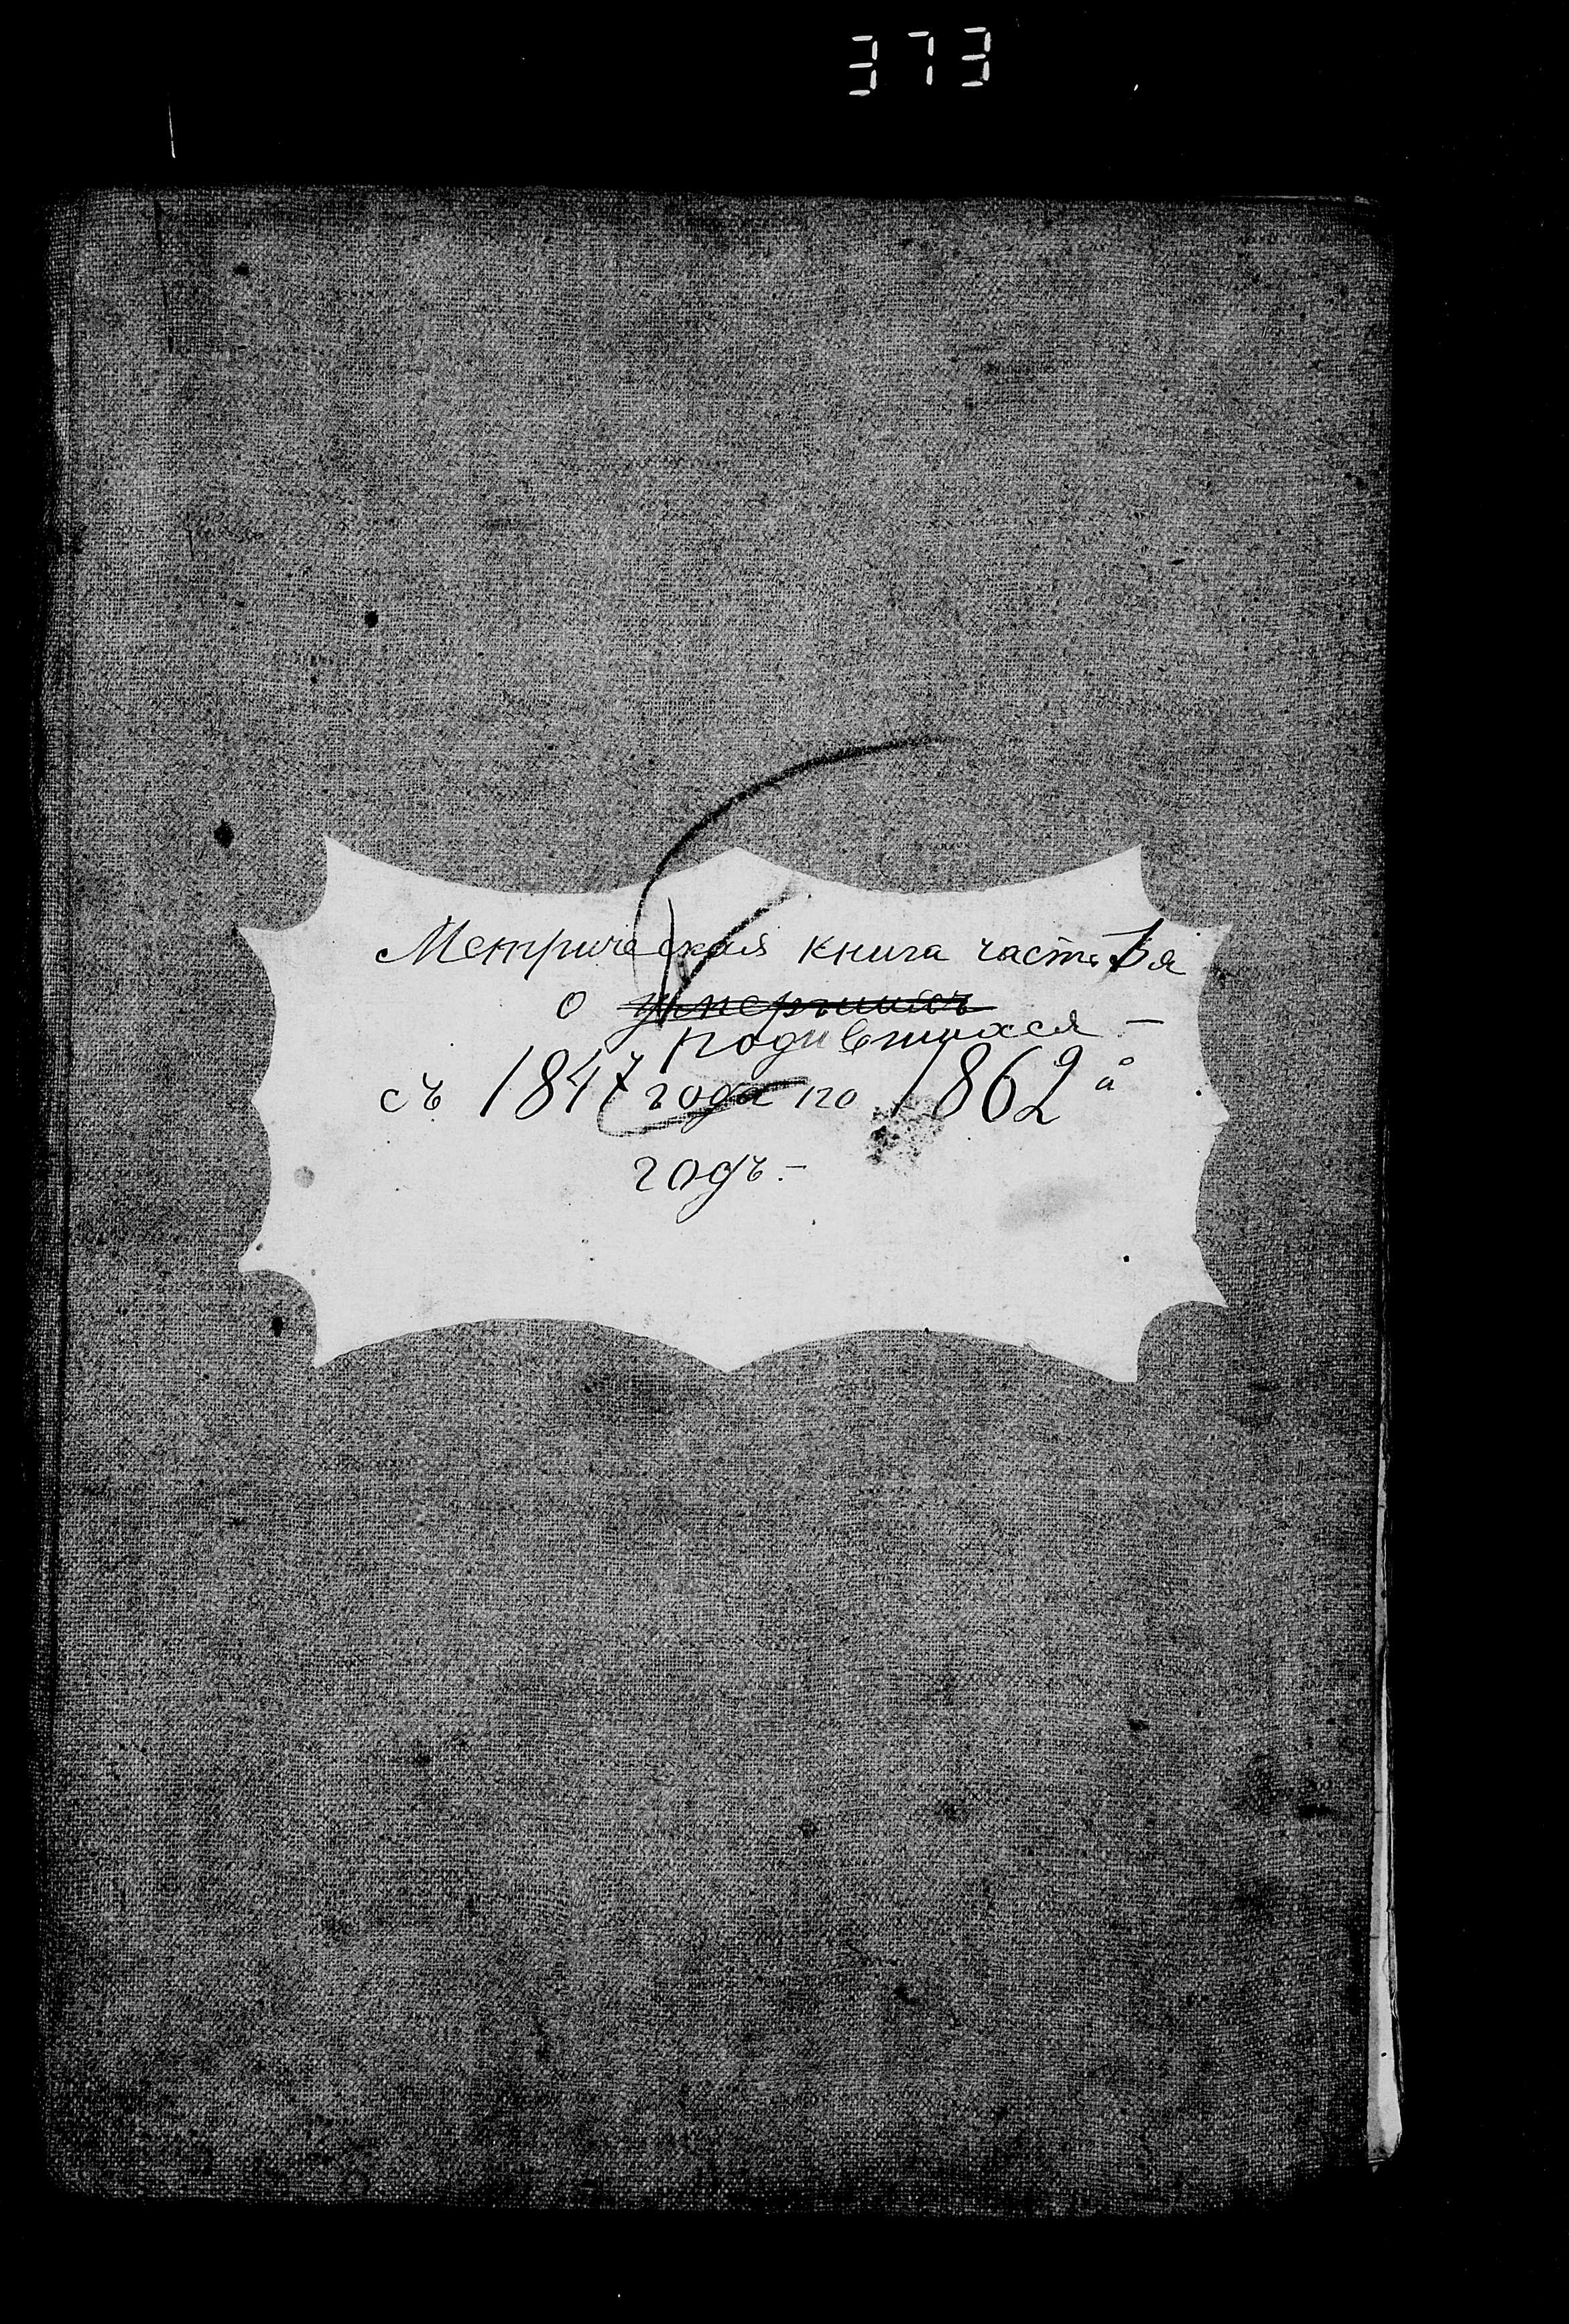 373
Метрическая книга часть 1я
о умершихъ
родившихся –
съ 1847 года по 1862й
годъ.–